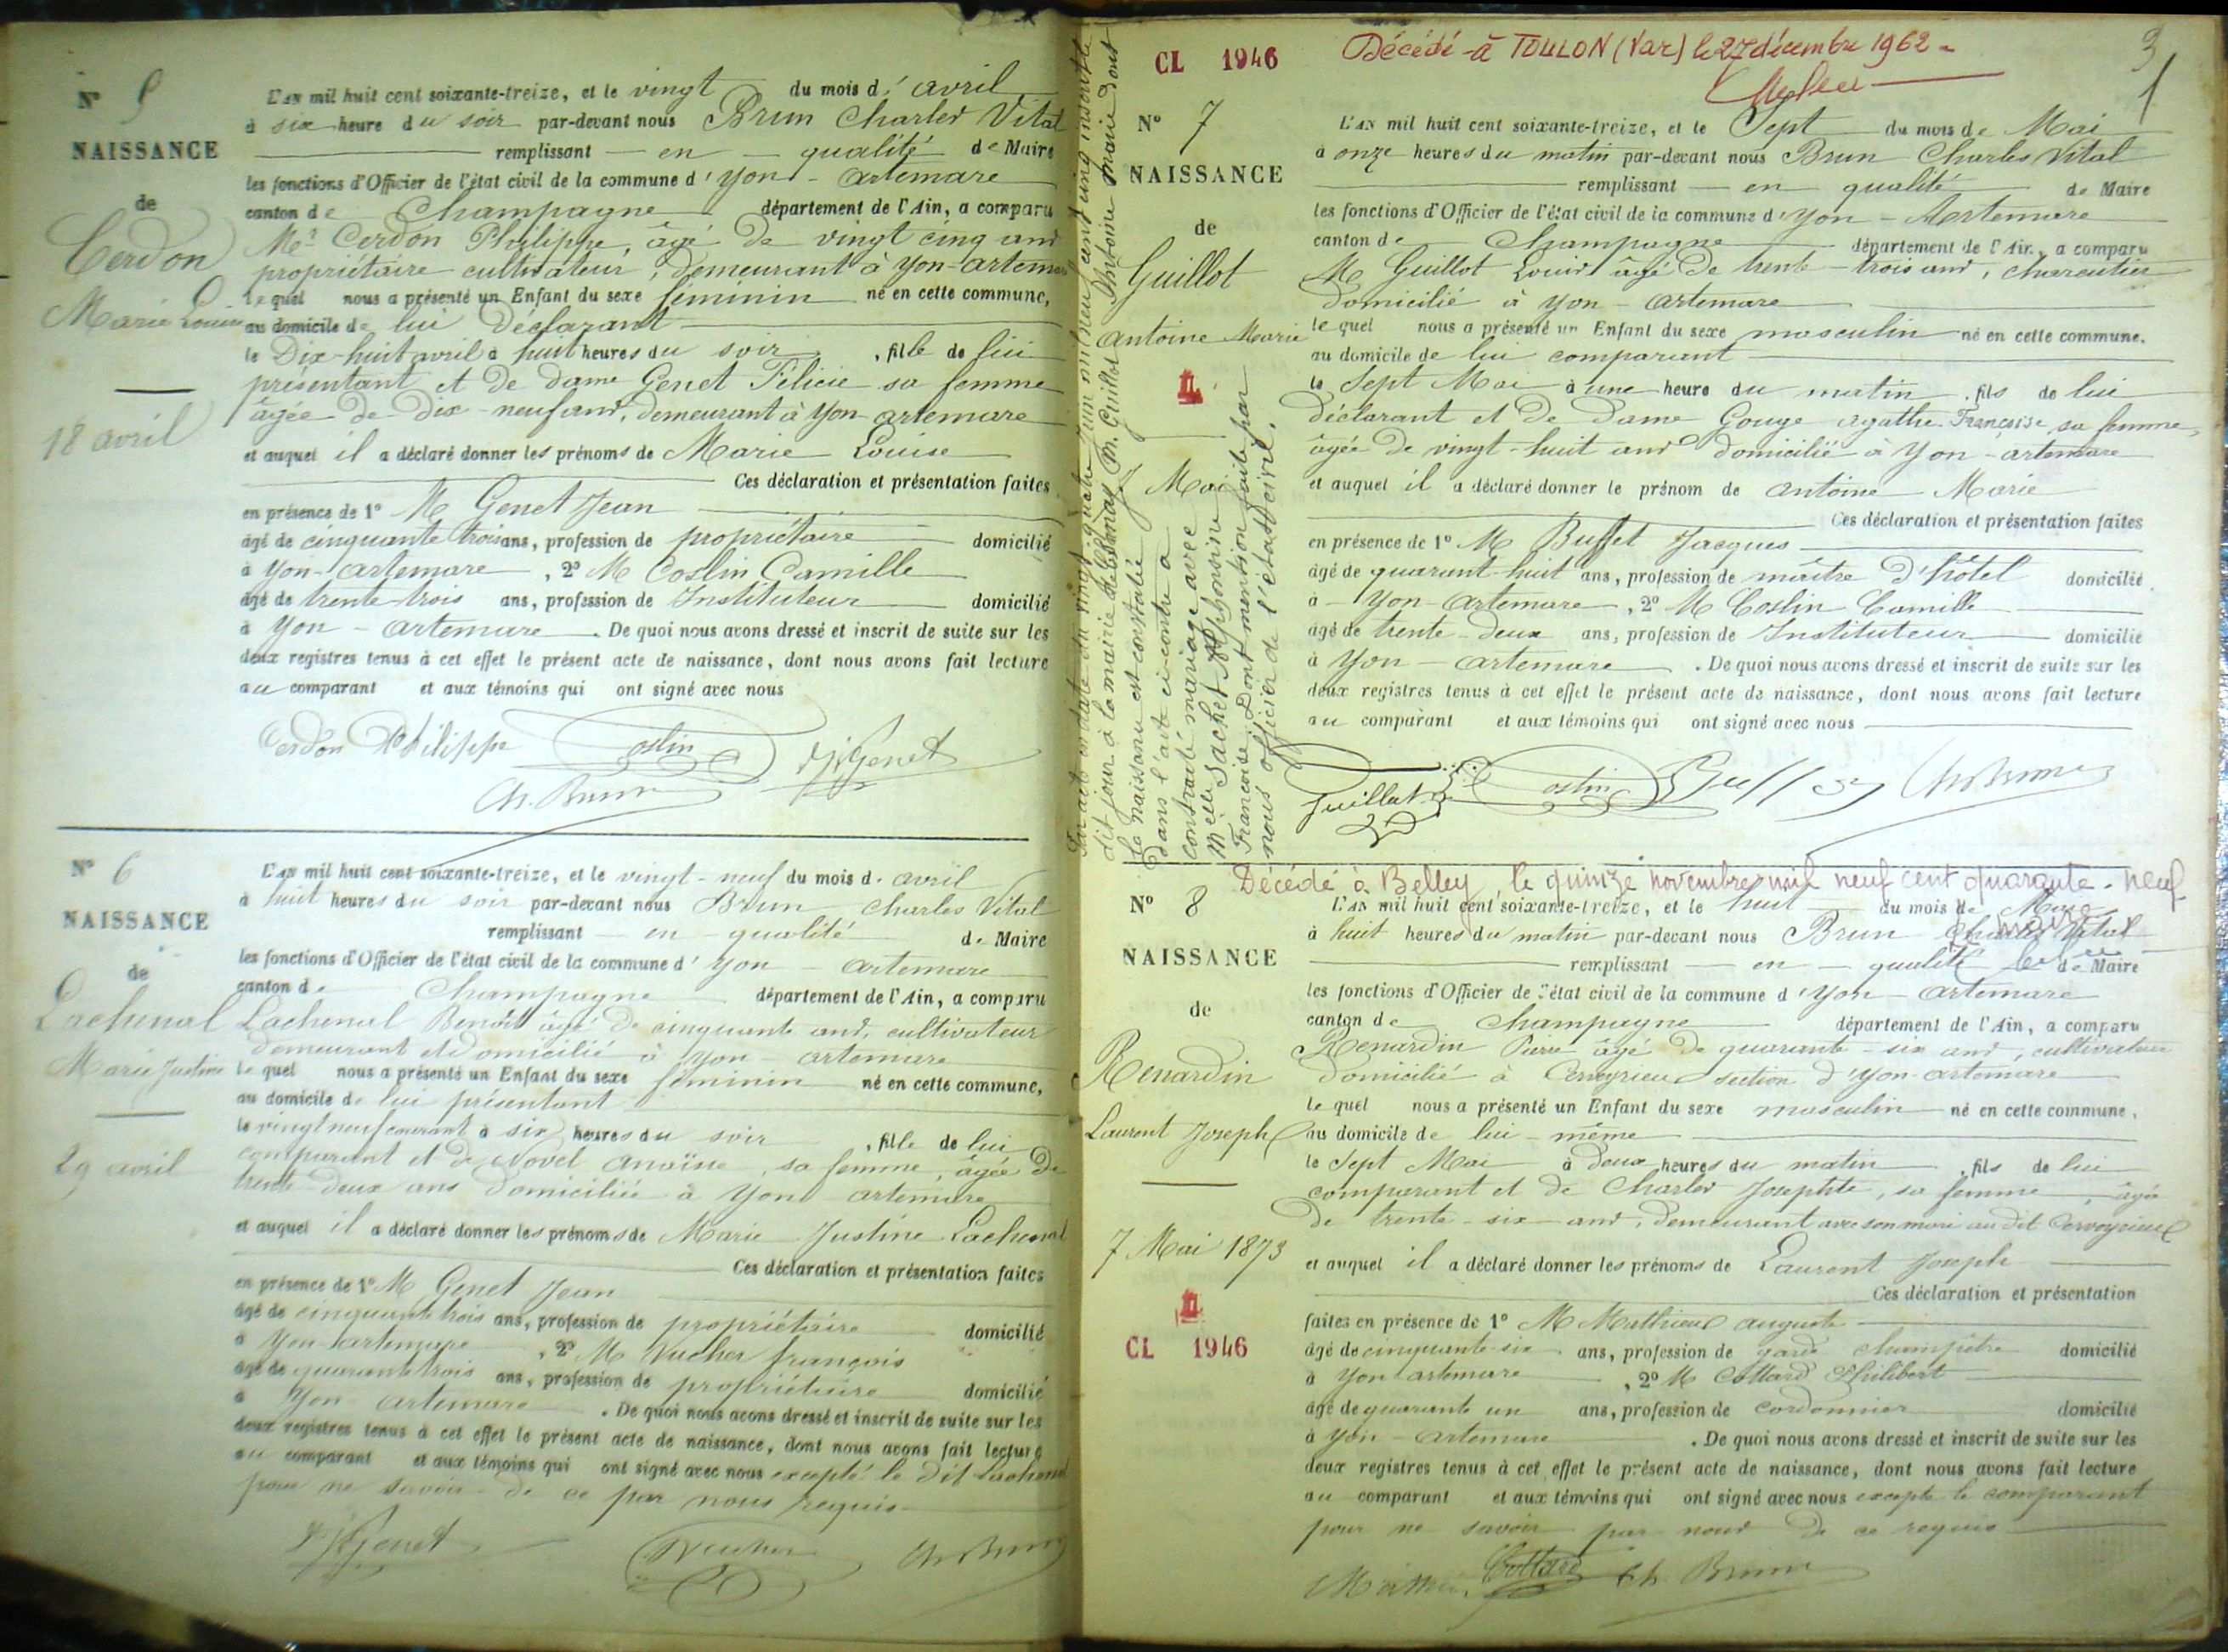 Nº 5
NAISSANCE
de
Cerdon
Marie Louise
18 avril
L'AN mil huit cent soixante-treize, et le vingt du mois d' avril
à six heure du soir par-devant nous Brun Charles Vital
remplissant en qualité de Maire
les fonctions d'Officier de l'état civil de la commune d' Yon - Artemare
canton de Champagne département de l'Ain, a comparu
Mr Cerdon Philippe, âgé de vingt cinq ans
propriétaire cultivateur, demeurant à Yon-artemare
lequel nous a présenté un Enfant du sexe féminin né en cette commune,
au domicile de lui déclarant
le Dix-huit avril à huit heures du soir, fille de lui
présentant et de dame Genet Félicie sa femme
âgée de dix-neuf ans, demeurant à Yon artemare
et auquel il a déclaré donner les prénoms de Marie Louise
Ces déclaration et présentation faites
en présence de 1º M Genet Jean
âgé de cinquante trois ans, profession de propriétaire domicilié
à Yon-artemare, 2º M Coslin Camille
âgé de trente-trois ans, profession de Instituteur domicilié
à Yon - artemare. De quoi nous avons dressé et inscrit de suite sur les
deux registres tenus à cet effet le présent acte de naissance, dont nous avons fait lecture
au comparant et aux témoins qui ont signé avec nous
Cerdon Philippe Coslin J Genet
Ch. Brun
Nº 6
NAISSANCE
de
Lachenal
Marie Justine
29 avril
L'AN mil huit cent soixante-treize, et le vingt-neuf du mois d. avril
à huit heures du soir par-devant nous Brun Charles Vital
remplissant en qualité de Maire
les fonctions d'Officier de l'état civil de la commune d' Yon - artemare
canton de Champagne département de l'Ain, a comparu
Lachenal Benoît âgé de cinquante ans, cultivateur
demeurant et domicilié à Yon - artemare
lequel nous a présenté un Enfant du sexe féminin né en cette commune,
au domicile de lui présentant
le vingt neuf courant à six heures du soir, fille de lui
comparant et de Novel Anaïse, sa femme, âgée de
trente-deux ans domiciliée à Yon artemare
et auquel il a déclaré donner les prénoms de Marie Justine Lachenal
Ces déclaration et présentation faites
en présence de 1º M Genet Jean
âgé de cinquante trois ans, profession de propriétaire domicilié
à Yon artemare, 2º M Vucher françois
âgé de quarante trois ans, profession de propriétaire domicilié
à Yon artemare. De quoi nous avons dressé et inscrit de suite sur les
deux registres tenus à cet effet le présent acte de naissance, dont nous avons fait lecture
au comparant et aux témoins qui ont signé avec nous excepté le dit Lachenal
pour ne savoir de ce par nous requis
J Genet Vucher Ch Brun
3
CL 1946
Décédé à TOULON (Var) le 27 décembre 1962
Nº 7
NAISSANCE
de
Guillot
Antoine Marie
7 Mai
dit jour à la mairie de M. Guillot Antoine Marie dont
la naissance est constatée
dans l'acte ci-contre a
contracté mariage avec
Melle Sachet Alphonsine
Françoise, Dont mention faite par
nous officier de l'état civil.
L'AN mil huit cent soixante-treize, et le Sept du mois de Mai
à onze heures du matin par-devant nous Brun Charles Vital
remplissant en qualité de Maire
les fonctions d'Officier de l'état civil de la commune d' Yon - Artemare
canton de Champagne département de l'Ain, a comparu
M Guillot Louis âgé de trente-trois ans, charcutier
domicilié à Yon - artemare
lequel nous a présenté un Enfant du sexe masculin né en cette commune.
au domicile de lui comparant
le Sept Mai à une heure du matin, fils de lui
déclarant et de Dame Gouge Agathe Françoise sa femme,
âgée de vingt-huit ans domicilié à Yon-artemare
et auquel il a déclaré donner le prénom de Antoine Marie
Ces déclaration et présentation faites
en présence de 1º M Buffet Jacques
âgé de quarant-huit ans, profession de maître d'hôtel domicilié
à Yon-Artemare, 2º M Coslin Camille
âgé de trente-deux ans, profession de Instituteur domicilié
à Yon - artemare. De quoi nous avons dressé et inscrit de suite sur les
deux registres tenus à cet effet le présent acte de naissance, dont nous avons fait lecture
au comparant et aux témoins qui ont signé avec nous
Guillot Coslin Buffet Ch Brun
Décédé à Belley, le quinze novembre mil neuf cent quarante-neuf
Nº 8
NAISSANCE
de
Renardin
Laurent Joseph
7 Mai 1873
CL 1946
L'AN mil huit cent soixante-treize, et le huit du mois de Mai
à huit heures du matin par-devant nous Brun Charles Vital
remplissant en qualité de Maire
les fonctions d'Officier de l'état civil de la commune d' Yon - artemare
canton de Champagne département de l'Ain, a comparu
Renardin Pierre âgé de quarante-six ans, cultivateur
domicilié à Cerveyrieu section d'Yon-artemare
lequel nous a présenté un Enfant du sexe masculin né en cette commune,
au domicile de lui-même
le Sept Mai à deux heures du matin, fils de lui
comparant et de Charles Josephte, sa femme, âgée
de trente-six ans, demeurant avec son mari au dit Cerveyrieu
et auquel il a déclaré donner les prénoms de Laurent Joseph
Ces déclaration et présentation
faites en présence de 1º M Mathieu auguste
âgé de cinquante-six ans, profession de garde champêtre domicilié
à Yon artemare, 2º M Cottard Philibert
âgé de quarante un ans, profession de cordonnier domicilié
à Yon - Artemare. De quoi nous avons dressé et inscrit de suite sur les
deux registres tenus à cet effet le présent acte de naissance, dont nous avons fait lecture
au comparant et aux témoins qui ont signé avec nous excepté le comparant
pour ne savoir par nous de ce requis
Mathieu Cottard Ch Brun